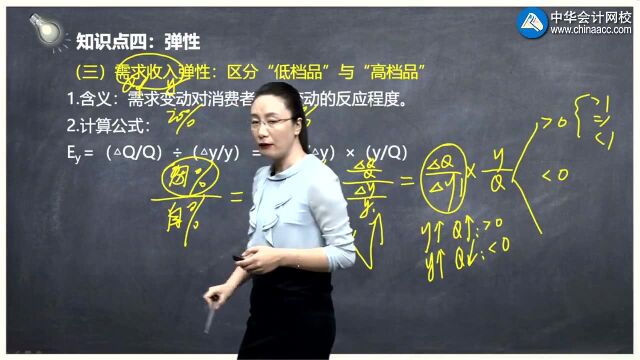 中华会计网校
www.chinaacc.com
知识点四：弹性
（三）需求收入弹性：区分“低档品”与“高档品”
1.含义：需求变动对消费者 动的反应程度。
2.计算公式：
Ey＝（△Q/Q）÷（△y/y）＝ △y）×（y/Q）
因%
自%
=
△Q
Q
△y
y
= △Q
△y
× y
Q
>0
>1
=1
<1
<0
y↑ Q↑:>0
y↑ Q↓:<0